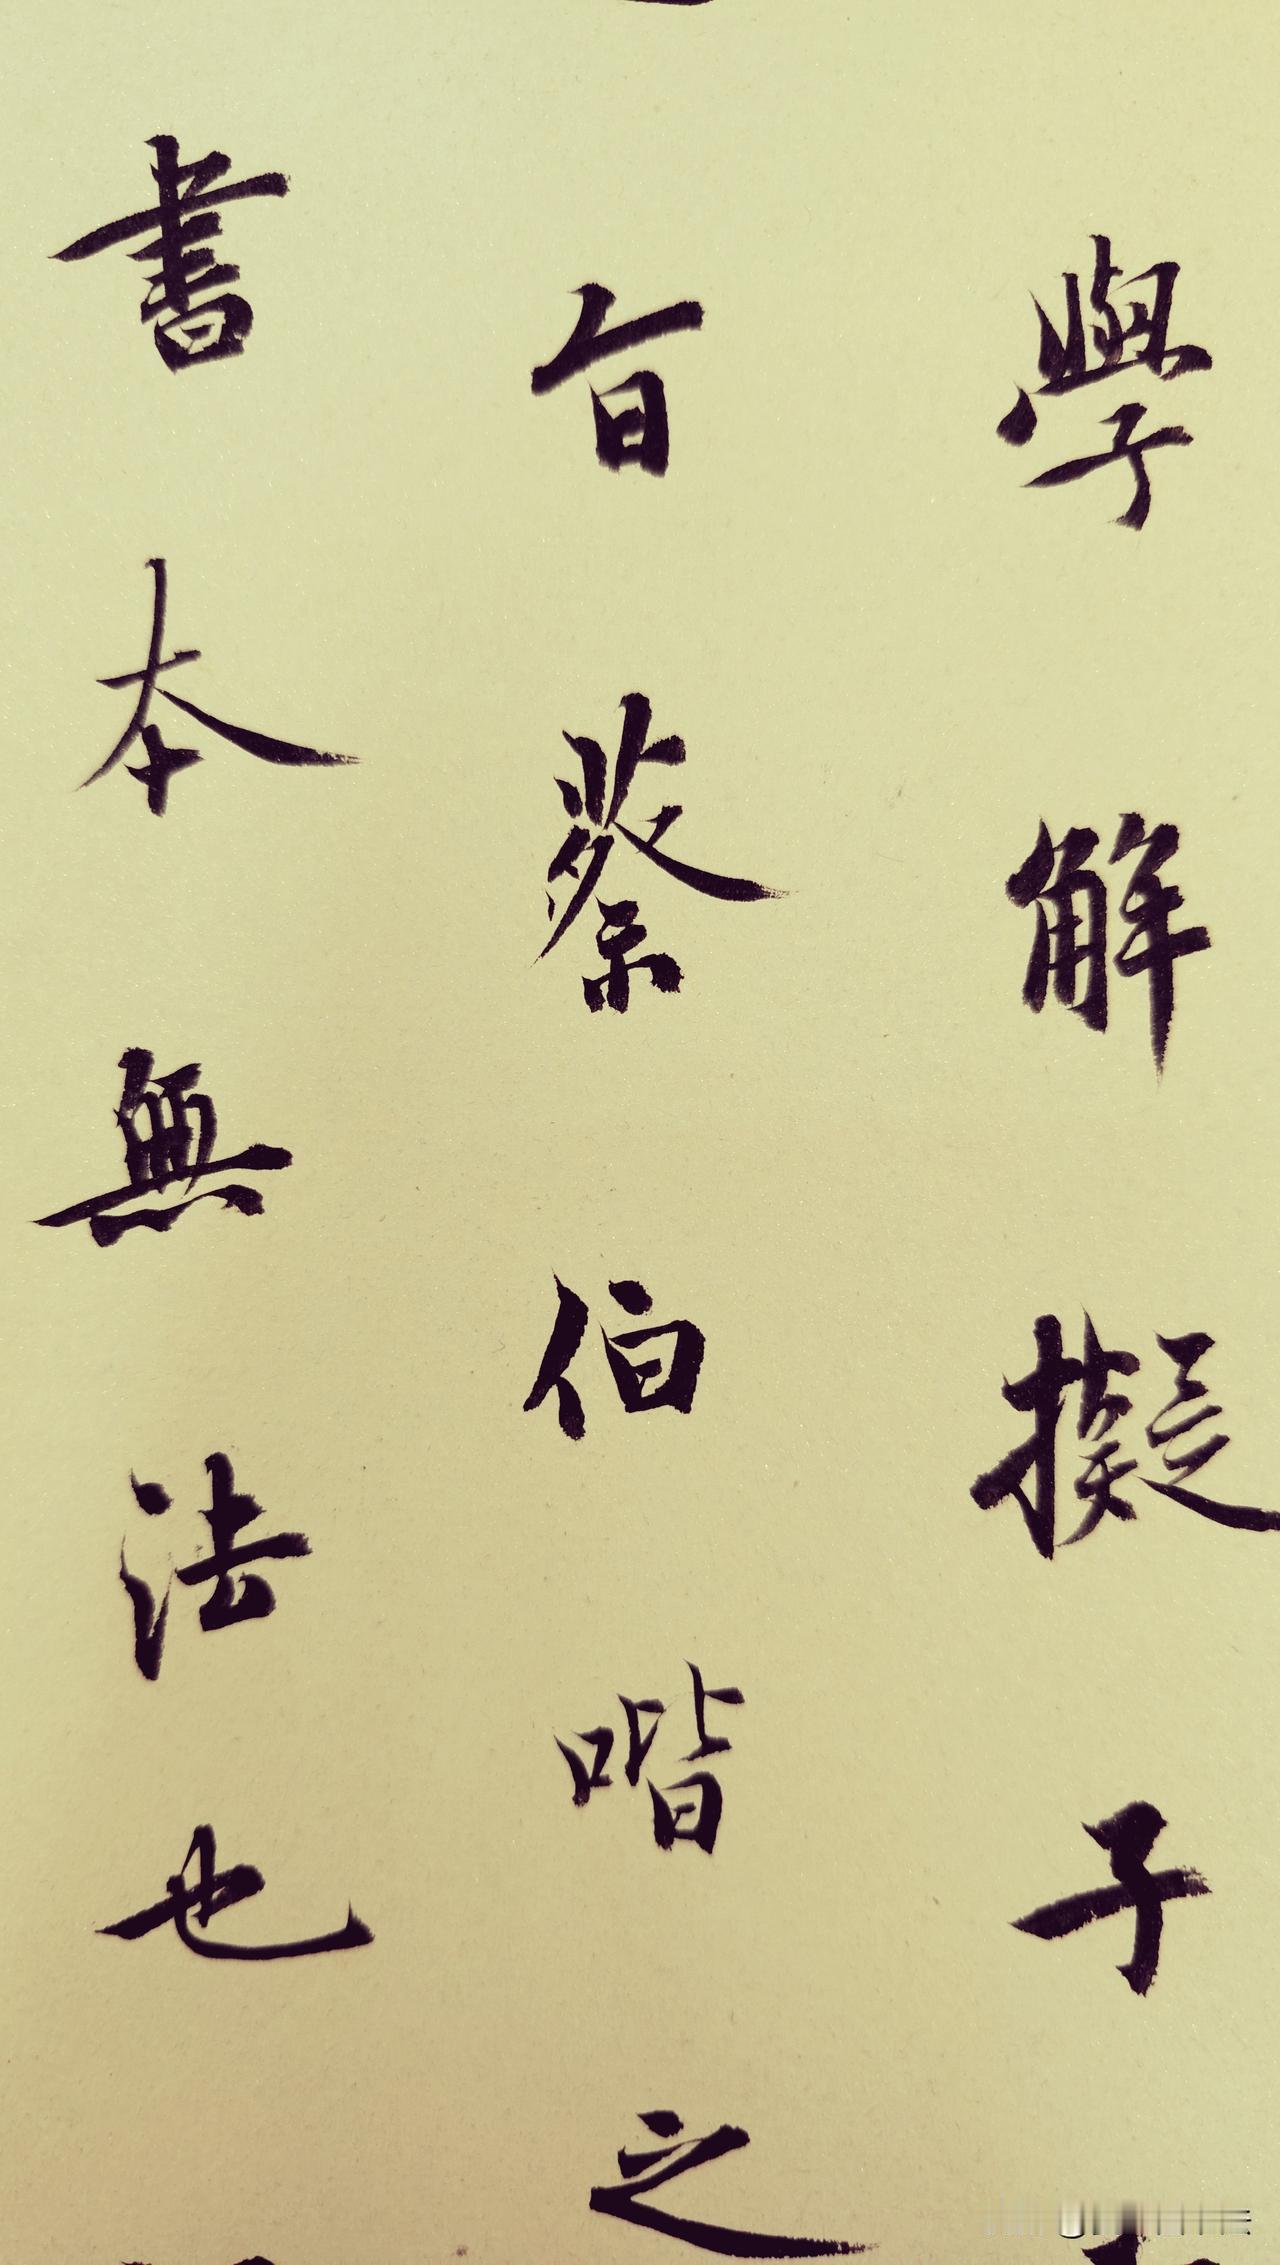 學解擬子
旨蔡伯喈之
書本無法也